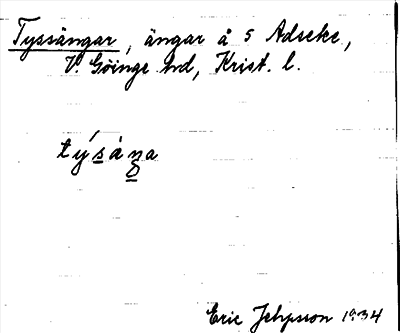 Tyssängar, ängar å 5 Adseke,
V. Göinge hd, Krist. l.
týsáŋa
Eric Jehpsson 1934